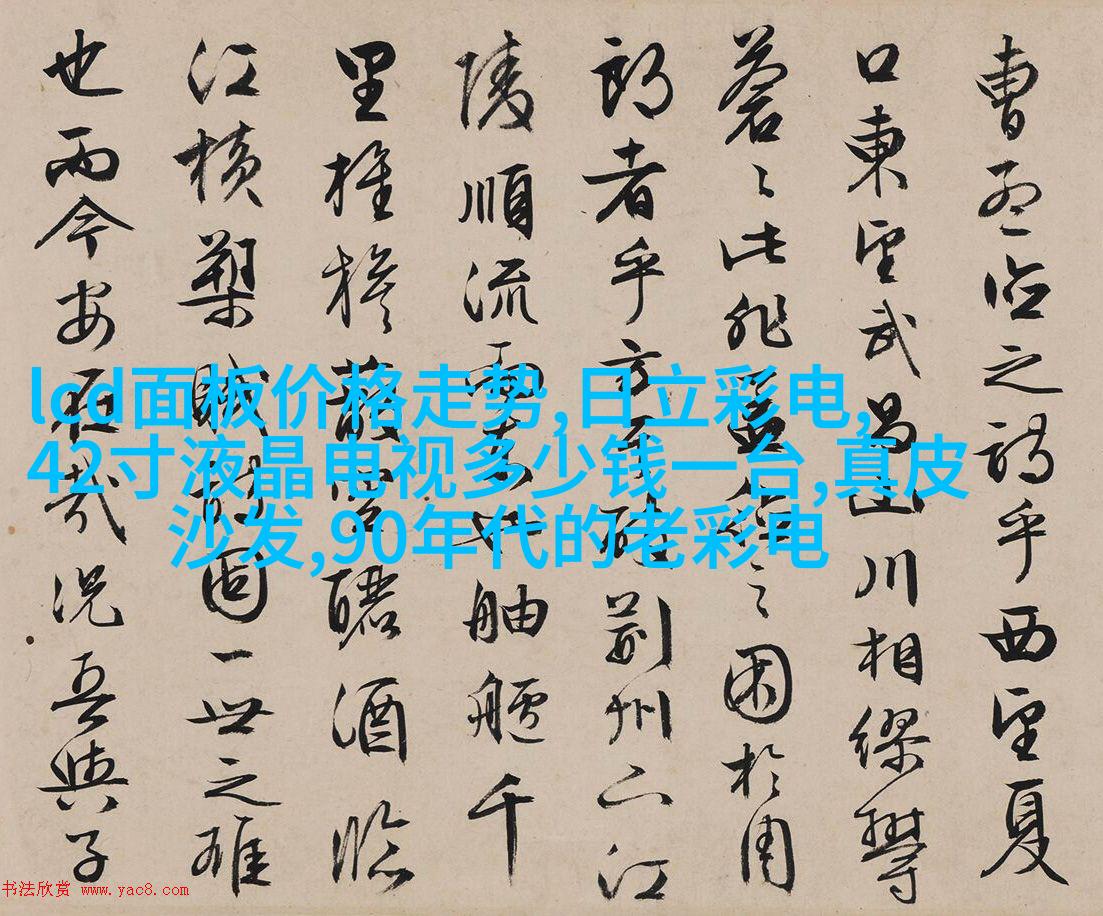 曹孟德之詩乎西望夏
口東望武昌山川相繆鬱
蒼〻此非孟德之困於周
郎者乎方其破荊州下江
陵順流而東也舳艫千
里旌旗蔽空釃酒臨
江橫槊賦詩固一世之雄
也而今安在哉況吾與子
lcd面板价格走势,日立彩电,
42寸液晶电视多少钱一台,真皮
沙发,90年代的老彩电
书法欣赏 www.yac8.com